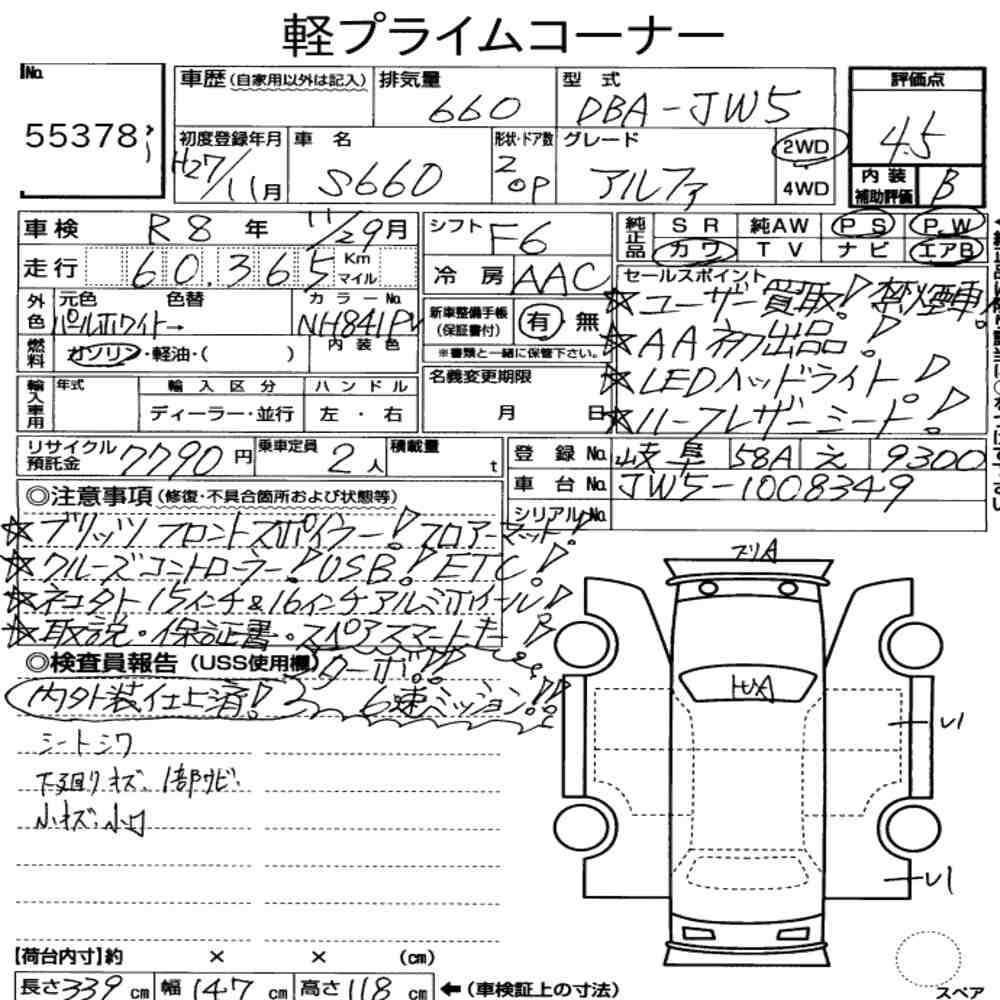 軽プライムコーナー
No.
55378
車歴(自家用以外は記入)
排気量
660
型 式
DBA-JW5
評価点
4.5
初度登録年月
H27/11月
車 名
S660
形状・ドア数
2 OP
グレード
アルファ
2WD
4WD
内 装
補助評価
B
車検 R8 年 11/29月
シフト F6
純正品
SR 純AW PS PW
カワ TV ナビ エアB
走行 60,365 Km マイル
冷 房 AAC
セールスポイント
☆ユーザー買取!禁煙車!
☆AA初出品!
☆LEDヘッドライト!
☆ハーフレザーシート!
外色
元色 色替
パールホワイト→
カラーNo.
NH841P
新車整備手帳
(保証書付)
有・無
※書類と一緒に保管下さい。
燃料
ガソリン・軽油・( )
内装色
輸入車用
年式
輸入区分
ディーラー・並行
ハンドル
左・右
名義変更期限
月 日
リサイクル
預託金
7790円
乗車定員
2人
積載量
t
登 録 No. 岐阜 58A え 9300
車 台 No. JW5-1008349
シリアルNo.
◎注意事項(修復・不具合箇所および状態等)
☆ブリッツフロントスポイラー!フロアーマット!
☆クルーズコントロラー!USB!ETC!
☆ネコタト15インチ&16インチアルミホイール!
☆取説・保証書・スペアスマートキー!
◎検査員報告(USS使用欄)
ターボ!!
内外装仕上済!
6速ミッション!!
シートシワ
下廻りキズ、1部サビ
小キズ、小凹
スリA
トUXA
スペア
【荷台内寸】約 × × (cm)
長さ339cm 幅147cm 高さ118cm ←(車検証上の寸法)